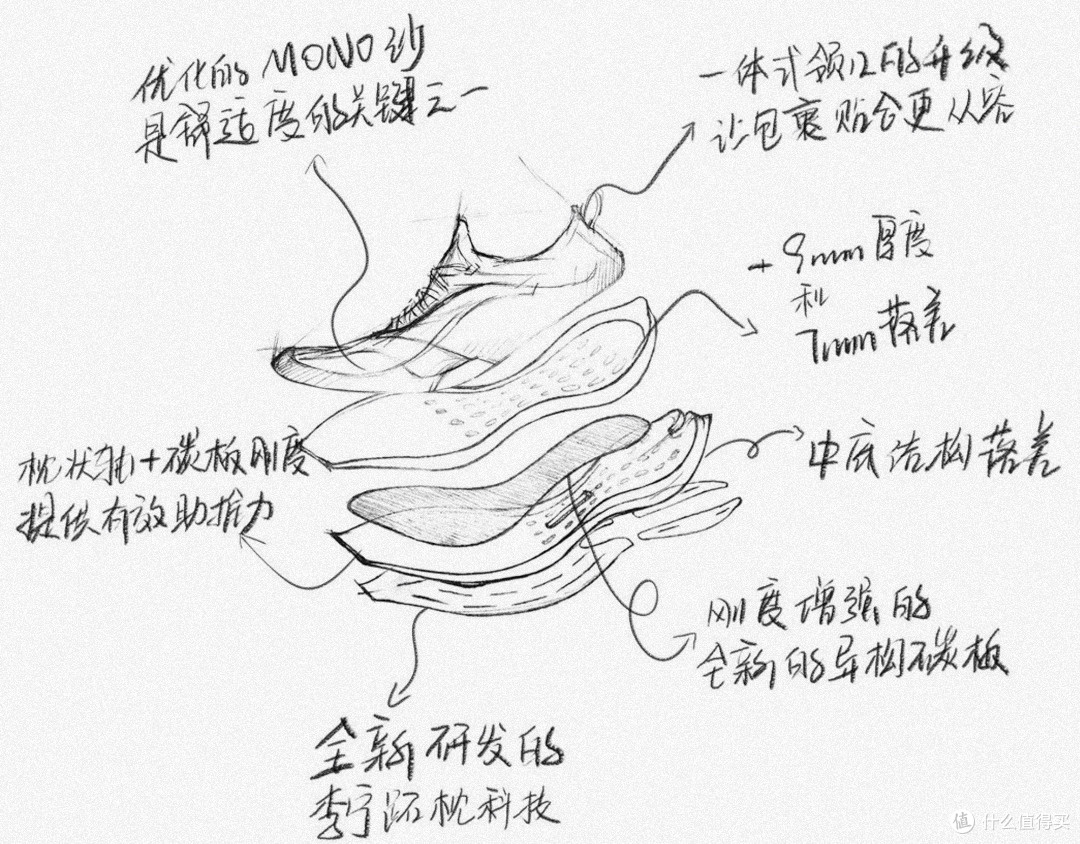 优化的MONO纱
是舒适度的关键之一
一体式领口的升级
让包裹贴合更从容
+9mm厚度
和
7mm落差
枕状轴+碳板刚度
提供有效助推力
中底结构落差
刚度增强的
全新的异构碳板
全新研发的
李宁跖枕科技
值 什么值得买